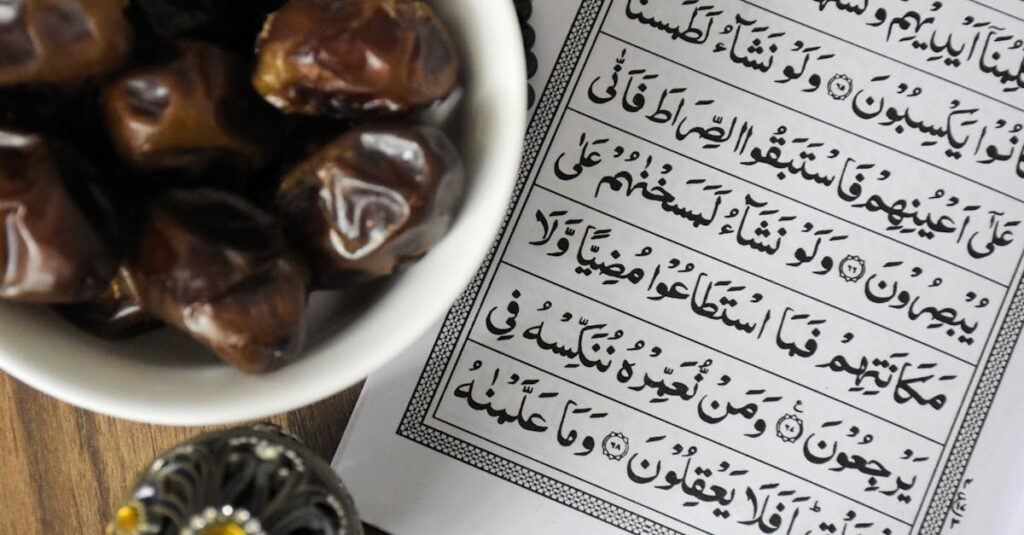 اَيْدِيْهِمْ
يَكْسِبُوْنَ ﴿۶۵﴾ وَلَوْ نَشَآءُ لَطَمَسْنَا
عَلٰٓى اَعْيُنِهِمْ فَاسْتَبَقُوا الصِّرَاطَ فَاَنّٰى
يُبْصِرُوْنَ ﴿۶۶﴾ وَلَوْ نَشَآءُ لَمَسَخْنٰهُمْ عَلٰى
مَكَانَتِهِمْ فَمَا اسْتَطَاعُوْا مُضِيًّا وَّلَا
يَرْجِعُوْنَ ﴿۶۷﴾ وَمَنْ نُّعَمِّرْهُ نُنَكِّسْهُ فِي
اَفَلَا يَعْقِلُوْنَ ﴿۶۸﴾ وَمَا عَلَّمْنٰهُ